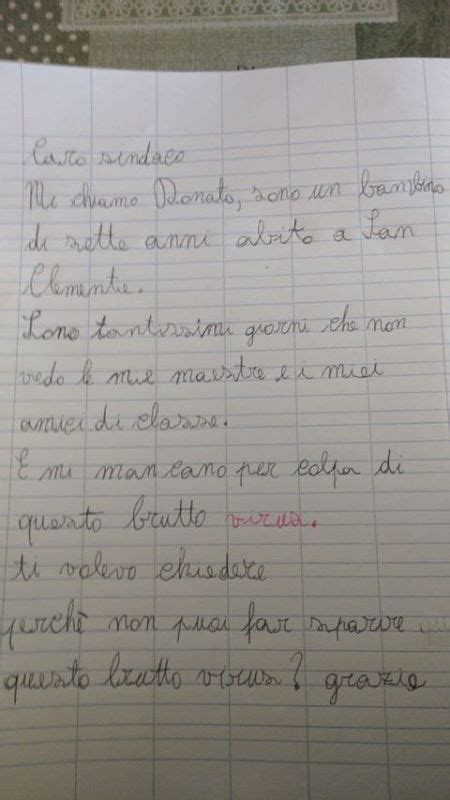 Caro sindaco
Mi chiamo Donato, sono un bambino
di sette anni abito a San
Clemente.
Sono tantissimi giorni che non
vedo le mie maestre e i miei
amici di classe.
E mi mancano per colpa di
questo brutto virus.
ti volevo chiedere
perchè non puoi far sparire
questo brutto virus? grazie